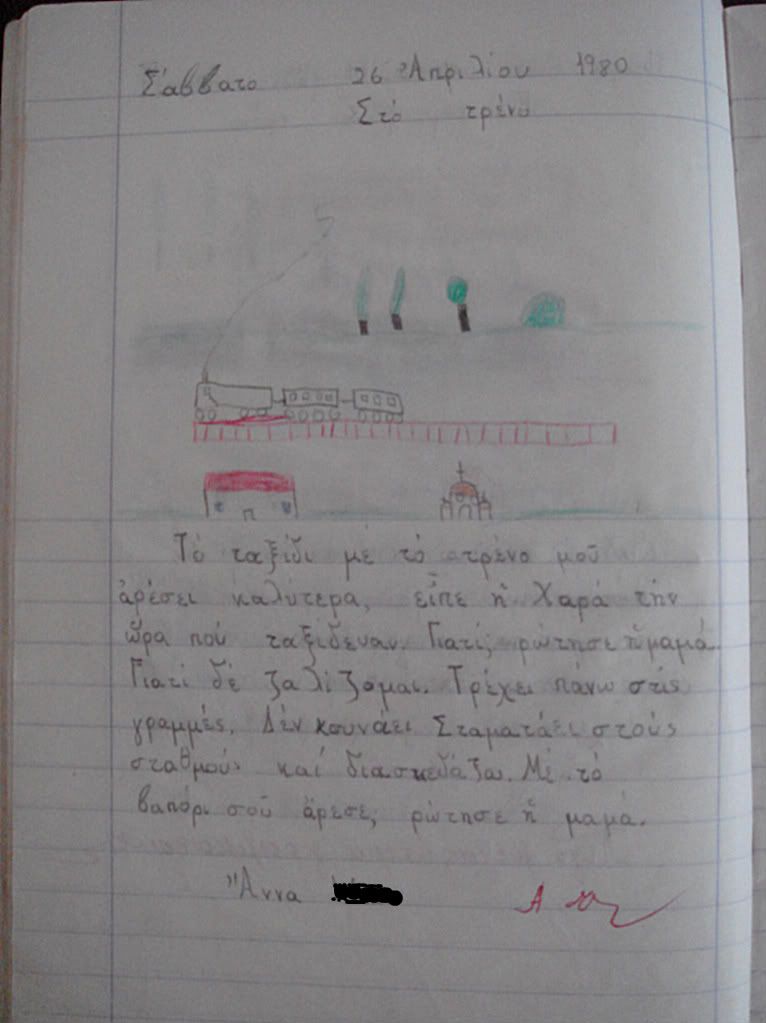 Σάββατο 26 Ἀπριλίου 1980
Στό τρένο
Τό ταξίδι μέ τό τρένο μοῦ
ἀρέσει καλύτερα, εἶπε ἡ Χαρά τήν
ὥρα πού ταξίδευαν. Γιατί; ρώτησε ἡ μαμά.
Γιατί δέ ζαλίζομαι. Τρέχει πάνω στίς
γραμμές. Δέν κουνάει Σταματάει στούς
σταθμούς καί διασκεδάζω. Μέ τό
βαπόρι σοῦ ἄρεσε; ρώτησε ἡ μαμά.
Ἄννα